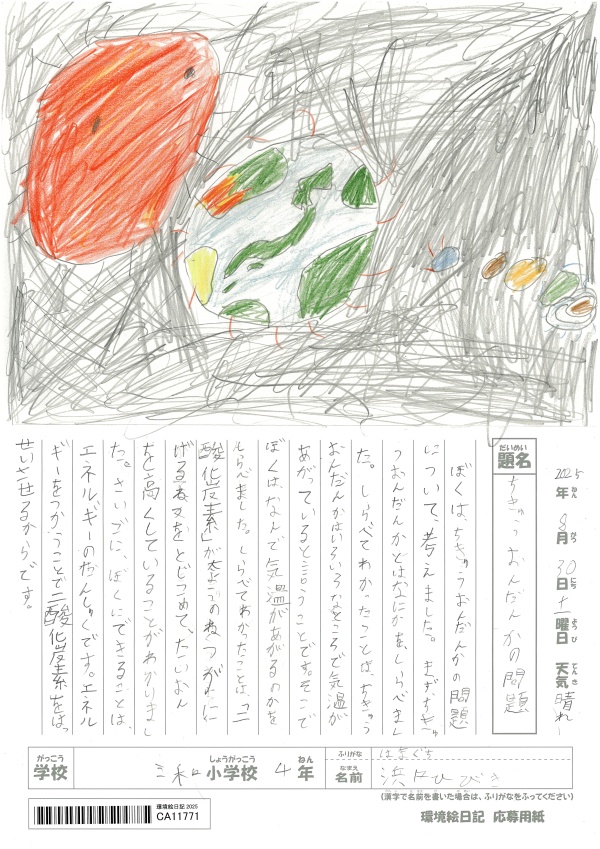 2025年 8月 30日 土曜日 天気 晴れ
ねん がつ にち ようび てんき
だいめい
題名
ちきゅうおんだんかの問題
ぼくは、ちきゅうおんだんかの問題
について、考えました。まず、ちきゅ
うおんだんかとはなにかを、しらべまし
た。しらべてわかったことは、ちきゅう
おんだんかはいろいろなところで気温が
あがっていると言うことです。そこで
ぼくは、なんで気温があがるのかを
しらべました。しらべてわかったことは、「二
酸化炭素」が太ようのねつがにに
げる
をとじこめて、たいおん
を高くしていることがわかりまし
た。さいごに、ぼくにできることは、
エネルギーのせんやくです。エネル
ギーをつかうことで二酸化炭素をはっ
せいさせるからです。
がっこう
学校
三和小学校 4年
しょうがっこう ねん
ふりがな はまぐち
なまえ
名前 浜口ひびき
(漢字で名前を書いた場合は、ふりがなをふってください)
環境絵日記 2025
CA11771
環境絵日記 応募用紙